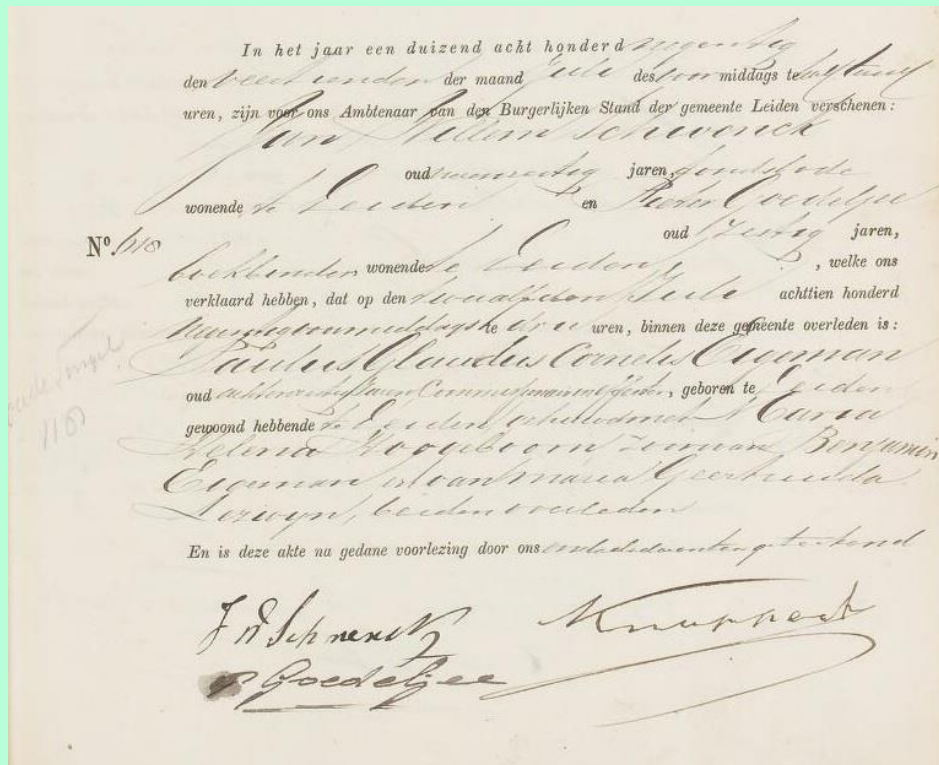 In het jaar een duizend acht honderd negentig
den veertienden der maand Juli des voor middags te half twaalf
uren, zijn voor ons Ambtenaar van den Burgerlijken Stand der gemeente Leiden verschenen:
Jan Willem Schwenck
oud jaren,
wonende te Leiden en Pieter Goedeljee
oud zestig jaren,
No. 618
boekbinder wonende te Leiden, welke ons
verklaard hebben, dat op den twaalfden Juli achttien honderd
negentig voormiddags te drie uren, binnen deze gemeente overleden is:
Paulus Claudius Cornelis Eigeman
oud jaren, geboren te Leiden
gewoond hebbende te Leiden, echtgenoot Maria
Helena Hoogeboom zoon van Benjamin
Eigeman en van Maria Geertruida
beiden overleden
En is deze akte na gedane voorlezing door ons en de declaranten geteekend
J W Schwenck
P Goedeljee
1181